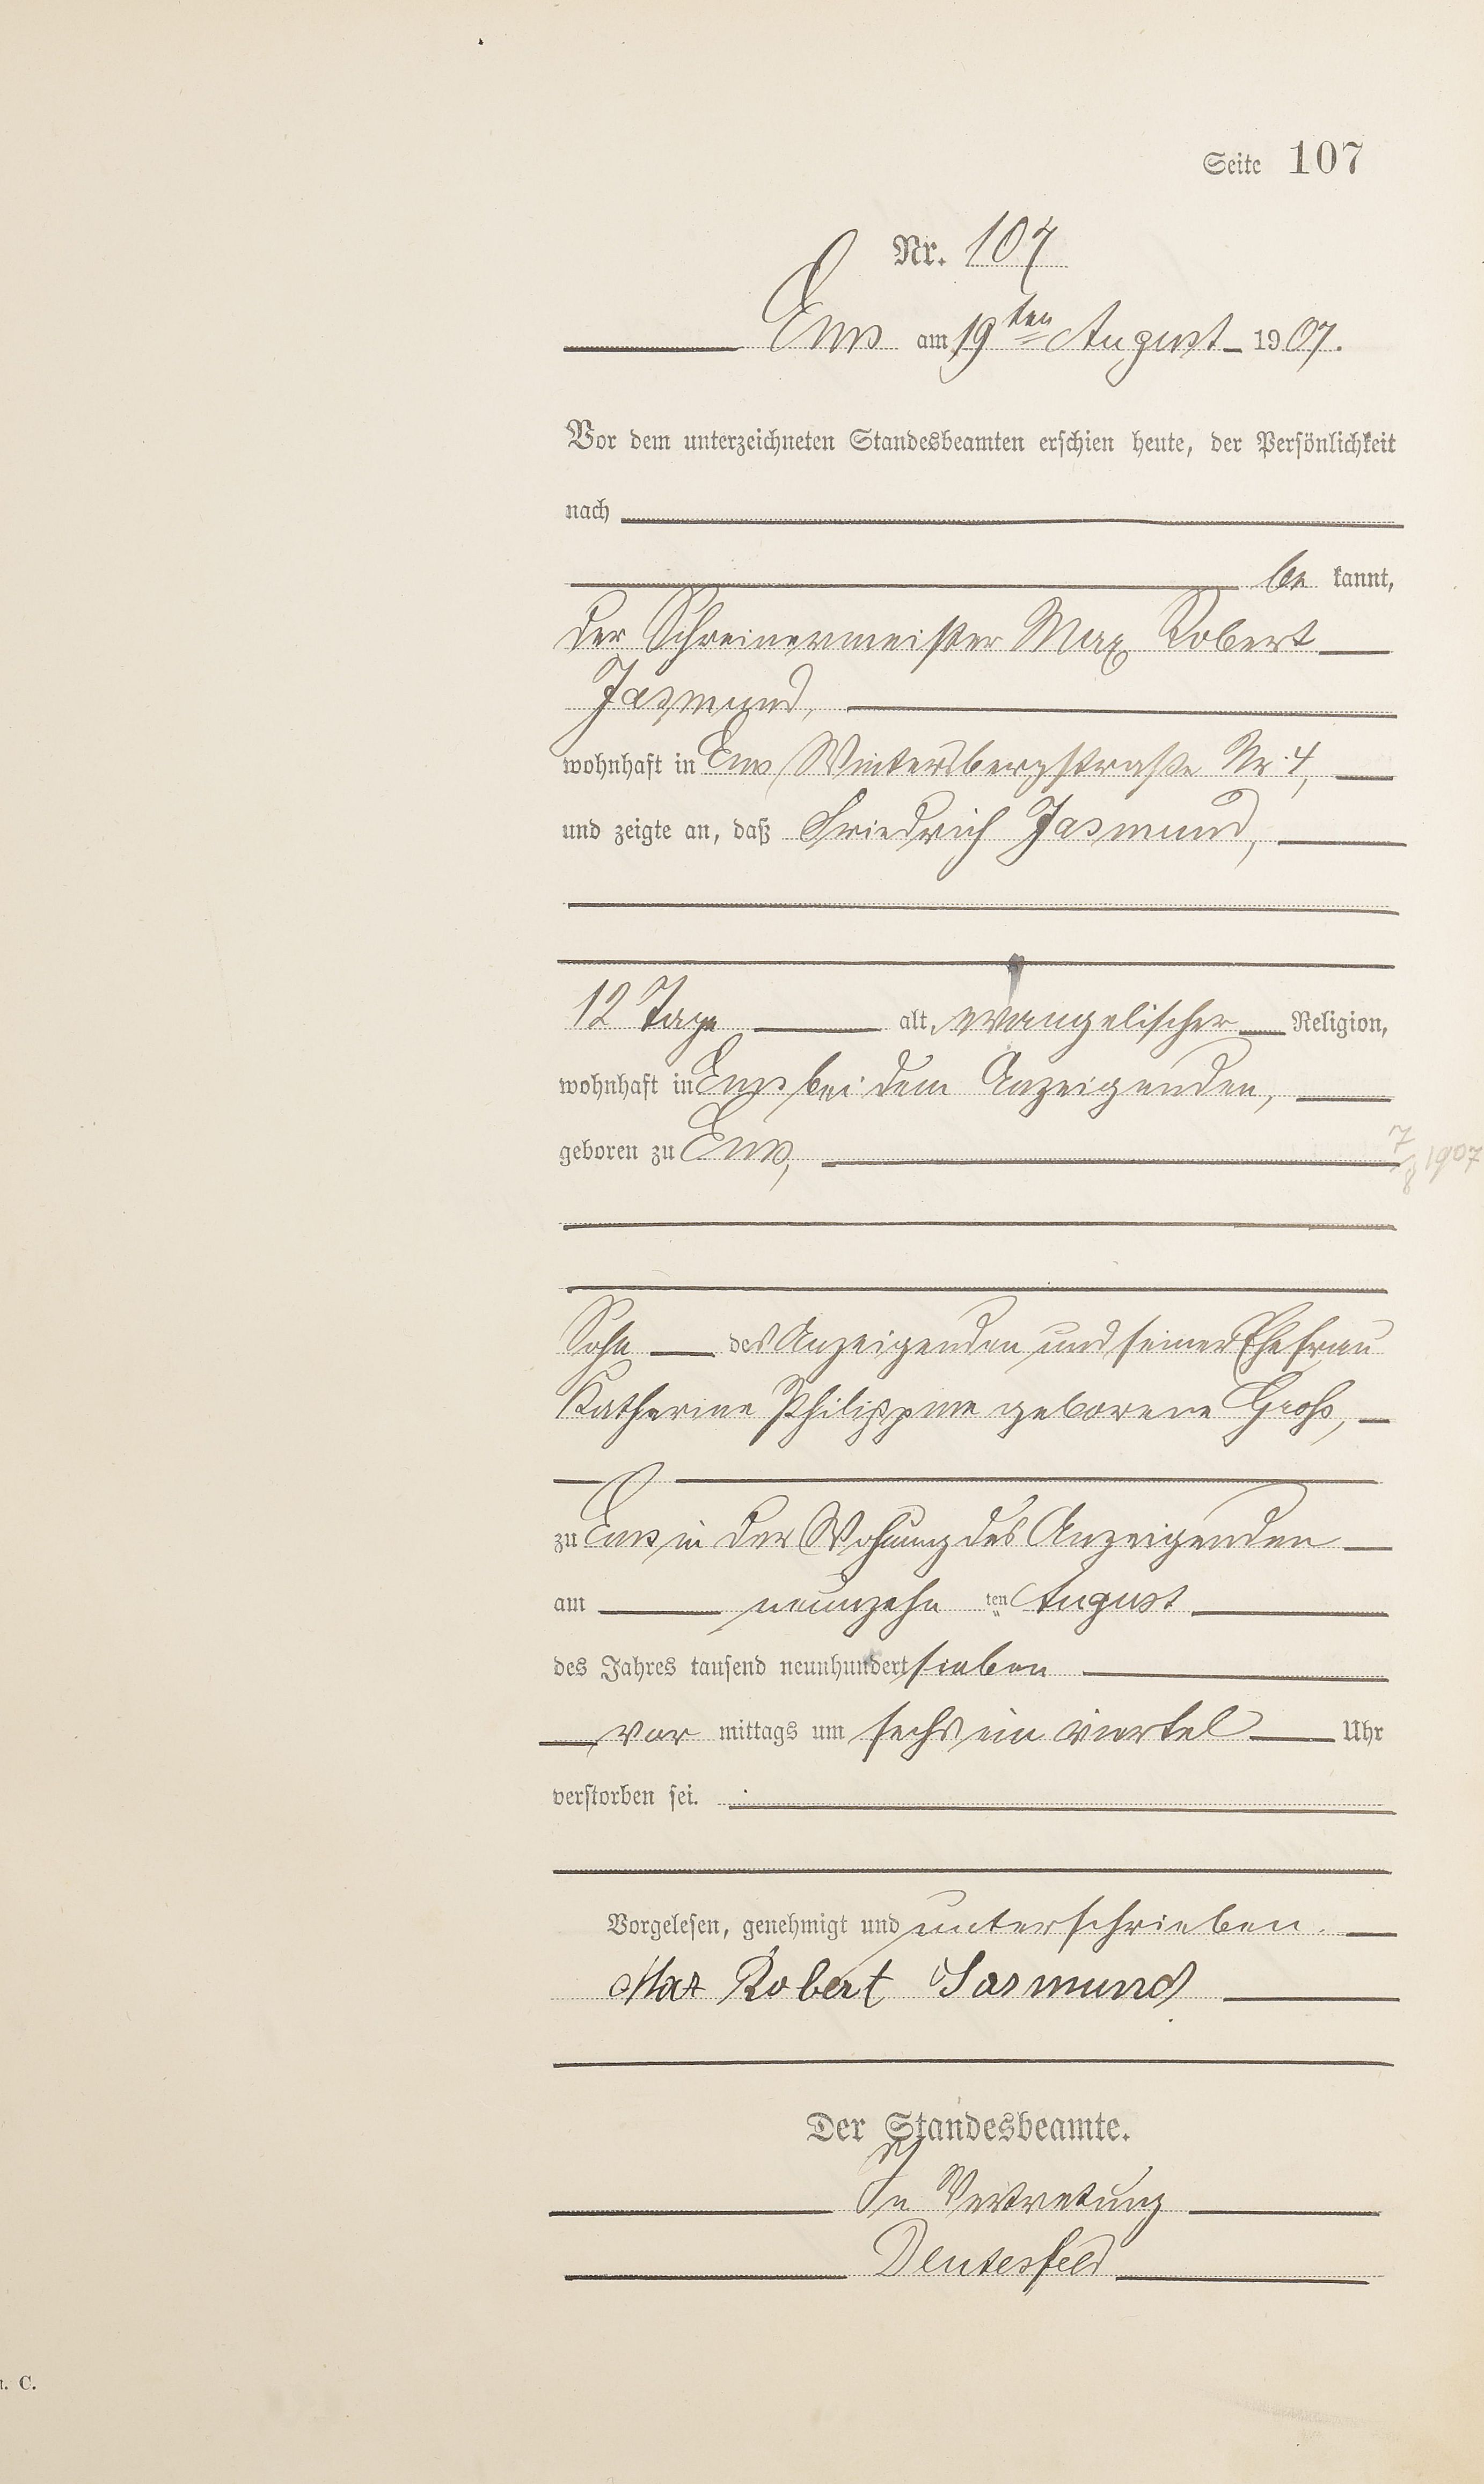 Seite 107
Nr. 107
Ems am 19ten August 1907.
Vor dem unterzeichneten Standesbeamten erschien heute, der Persönlichkeit
nach
be kannt,
der Schreinermeister Max Robert
Jasmund,
wohnhaft in Ems Wintersbergstraße Nr. 4,
und zeigte an, daß Friedrich Jasmund,
12 Tage alt, evangelischer Religion,
wohnhaft in Ems bei dem Anzeigenden,
geboren zu Ems,
7/8 1907
Sohn des Anzeigenden und seiner Ehefrau
Katharine Philippine geborene Groß,
zu Ems in der Wohnung des Anzeigenden
am neunzehn ten August
des Jahres tausend neunhundert sieben
vor mittags um sechs ein viertel Uhr
verstorben sei.
Vorgelesen, genehmigt und unterschrieben.
Max Robert Jasmund
Der Standesbeamte.
In Vertretung
Deutesfeld
C.